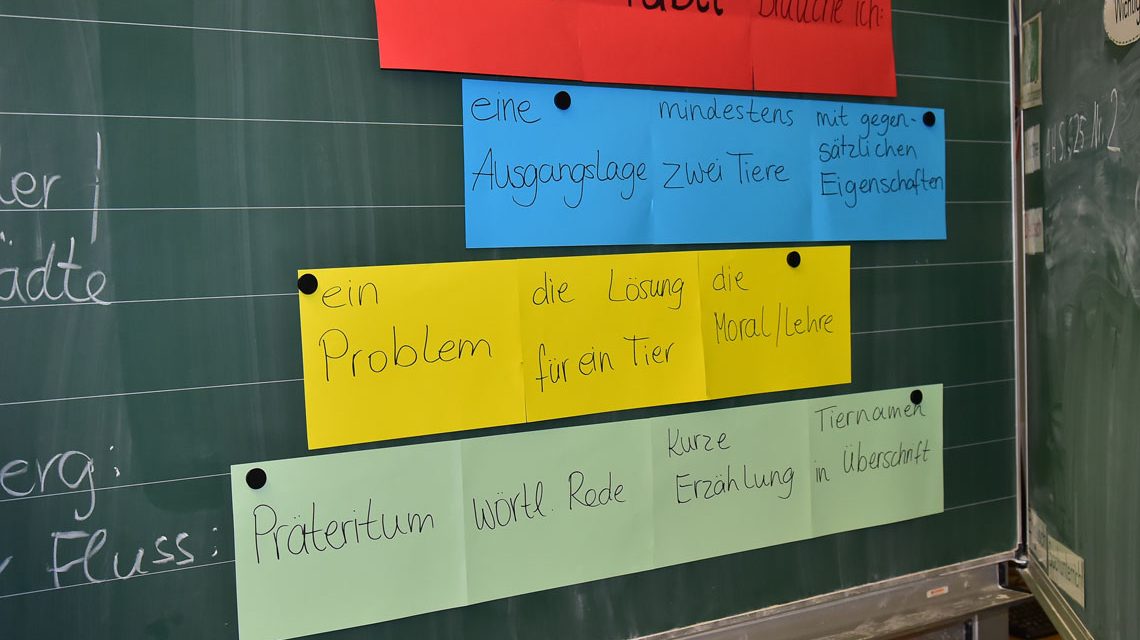 Fabel
brauche ich:
eine
Ausgangslage
mindestens
zwei Tiere
mit gegen-
sätzlichen
Eigenschaften
ein
Problem
die Lösung
für ein Tier
die
Moral/Lehre
Präteritum
wörtl. Rede
Kurze
Erzählung
Tiernamen
in Überschrift
Fluss:
AHS S25 Nr. 2